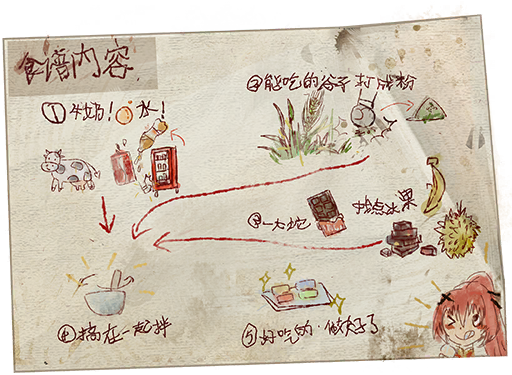 食谱内容.
①牛奶!水!
②能吃的谷子 打成粉
③一大坨
找点水果
④搞在一起拌
⑤好吃的·做好了